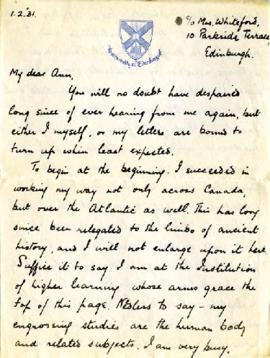 1.2.31.
c/o Mrs. Whiteford,
10 Parkside Terrace
Edinburgh.
University of Edinburgh
My dear Ann,
You will no doubt have despaired
long since of ever hearing from me again, but
either I myself, or my letters are bound to
turn up when least expected.
To begin at the beginning. I succeeded in
working my way not only across Canada,
but over the Atlantic as well. This has long
since been relegated to the limbo of ancient
history, and I will not enlarge upon it here.
Suffice it to say I am at the Institution
of higher learning whose arms grace the
top of this page. Needless to say - my
engrossing studies are the human body
and related subjects. I am very busy.